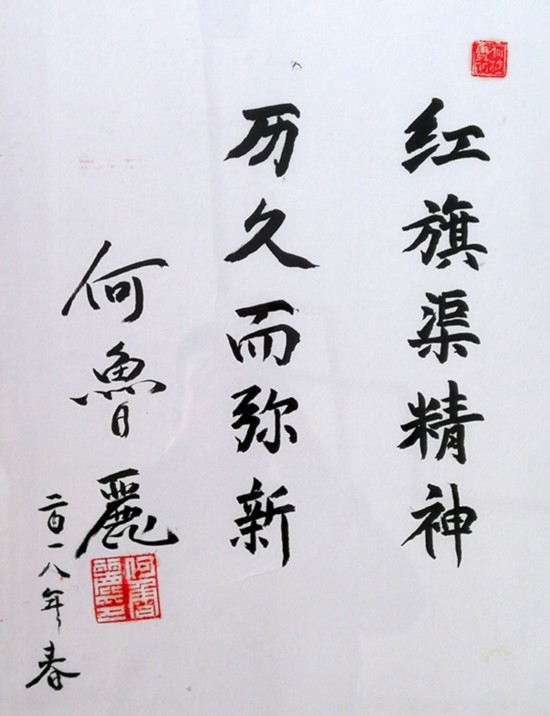 红旗渠精神
历久而弥新
何鲁麗
二〇一八年春